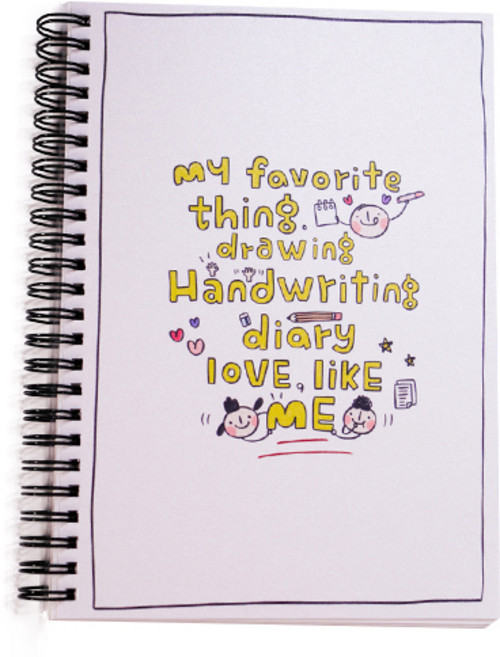 my favorite
thing.
drawing
Handwriting
diary
loVE, liKE
ME